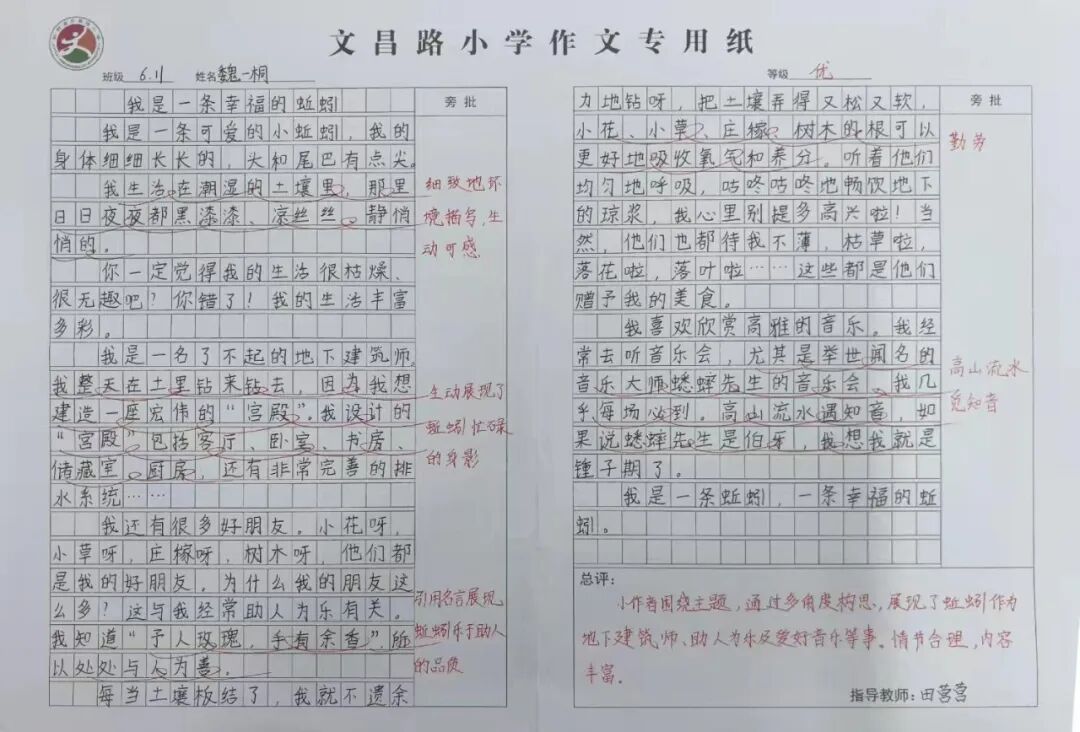 文昌路小学作文专用纸
班级 6.11 姓名 魏一桐
等级 优
旁批
我是一条幸福的蚯蚓
我是一条可爱的小蚯蚓，我的
身体细细长长的，头和尾巴有点尖。
我生活在潮湿的土壤里，那里
日日夜夜都黑漆漆、凉丝丝、静悄
悄的。
你一定觉得我的生活很枯燥、
很无趣吧？你错了！我的生活丰富
多彩。
我是一名了不起的地下建筑师。
我整天在土里钻来钻去，因为我想
建造一座宏伟的“宫殿”。我设计的
“宫殿”包括客厅、卧室、书房、
储藏室、厨房，还有非常完善的排
水系统……
我还有很多好朋友。小花呀，
小草呀，庄稼呀，树木呀，他们都
是我的好朋友。为什么我的朋友这
么多？这与我经常助人为乐有关。
我知道“予人玫瑰，手有余香”，所
以处处与人为善。
每当土壤板结了，我就不遗余
细致地环
境描写，生
动可感
生动展现了
蚯蚓忙碌
的身影
引用名言展现
蚯蚓乐于助人
的品质
旁批
力地钻呀，把土壤弄得又松又软，
小花、小草、庄稼、树木的根可以
更好地吸收氧气和养分。听着他们
均匀地呼吸，咕咚咕咚地畅饮地下
的琼浆，我心里别提多高兴啦！当
然，他们也都待我不薄，枯草啦，
落花啦，落叶啦……这些都是他们
赠予我的美食。
我喜欢欣赏高雅的音乐。我经
常去听音乐会，尤其是举世闻名的
音乐大师蟋蟀先生的音乐会，我几
乎每场必到。高山流水遇知音，如
果说蟋蟀先生是伯牙，我想我就是
锺子期了。
我是一条蚯蚓，一条幸福的蚯
蚓。
勤劳
高山流水
觅知音
总评：
小作者围绕主题，通过多角度构思，展现了蚯蚓作为
地下建筑师、助人为乐及爱好音乐等事。情节合理，内容
丰富。
指导教师：田营营